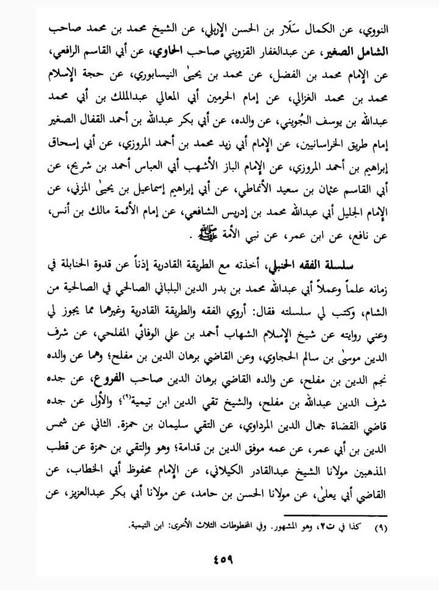 النووي، عن الكمال سَلَّار بن الحسن الإربلي، عن الشيخ محمد بن محمد صاحب
الشامل الصغير، عن عبدالغفار القزويني صاحب الحاوي، عن أبي القاسم الرافعي،
عن الإمام محمد بن الفضل، عن محمد بن يحيىٰ النيسابوري، عن حجة الإسلام
محمد بن محمد الغزالي، عن إمام الحرمين أبي المعالي عبدالملك بن أبي محمد
عبدالله بن يوسف الجُويني، عن والده، عن أبي بكر عبدالله بن أحمد القفال الصغير
إمام طريق الخراسانيين، عن الإمام أبي زيد محمد بن أحمد المروزي، عن أبي إسحاق
إبراهيم بن أحمد المروزي، عن الإمام الباز الأشهب أبي العباس أحمد بن شريح، عن
أبي القاسم عثمان بن سعيد الأنماطي، عن أبي إبراهيم إسماعيل بن يحيىٰ المزني، عن
الإمام الجليل أبي عبدالله محمد بن إدريس الشافعي، عن إمام الأئمة مالك بن أنس،
عن نافع، عن ابن عمر، عن نبي الأمة ﷺ .
سلسلة الفقه الحنبلي، أخذته مع الطريقة القادرية إذناً عن قدوة الحنابلة في
زمانه علماً وعملاً أبي عبدالله محمد بن بدر الدين البلباني الصالحي في الصالحية من
الشام، وكتب لي سلسلته فقال: أروي الفقه والطريقة القادرية وغيرهما مما يجوز لي
وعني روايته عن شيخ الإسلام الشهاب أحمد بن علي الوفائي المفلحي، عن شرف
الدين موسىٰ بن سالم الحجاوي، وعن القاضي برهان الدين بن مفلح؛ وهما عن والده
نجم الدين بن مفلح، عن والده القاضي برهان الدين صاحب الفروع، عن جده
شرف الدين عبدالله بن مفلح، والشيخ تقي الدين ابن تيمية(٩)؛ والأول عن جده
قاضي القضاة جمال الدين المرداوي، عن التقي سليمان بن حمزة. الثاني عن شمس
الدين بن أبي عمر، عن عمه موفق الدين بن قدامة؛ وهو والتقي بن حمزة عن قطب
المذهبين مولانا الشيخ عبدالقادر الكيلاني، عن الإمام محفوظ أبي الخطاب، عن
القاضي أبي يعلىٰ، عن مولانا الحسن بن حامد، عن مولانا أبي بكر عبدالعزيز، عن
(٩) كذا في ت٢، وهو المشهور. وفي المخطوطات الثلاث الأخرى: ابن التيمية.
٤٥٩